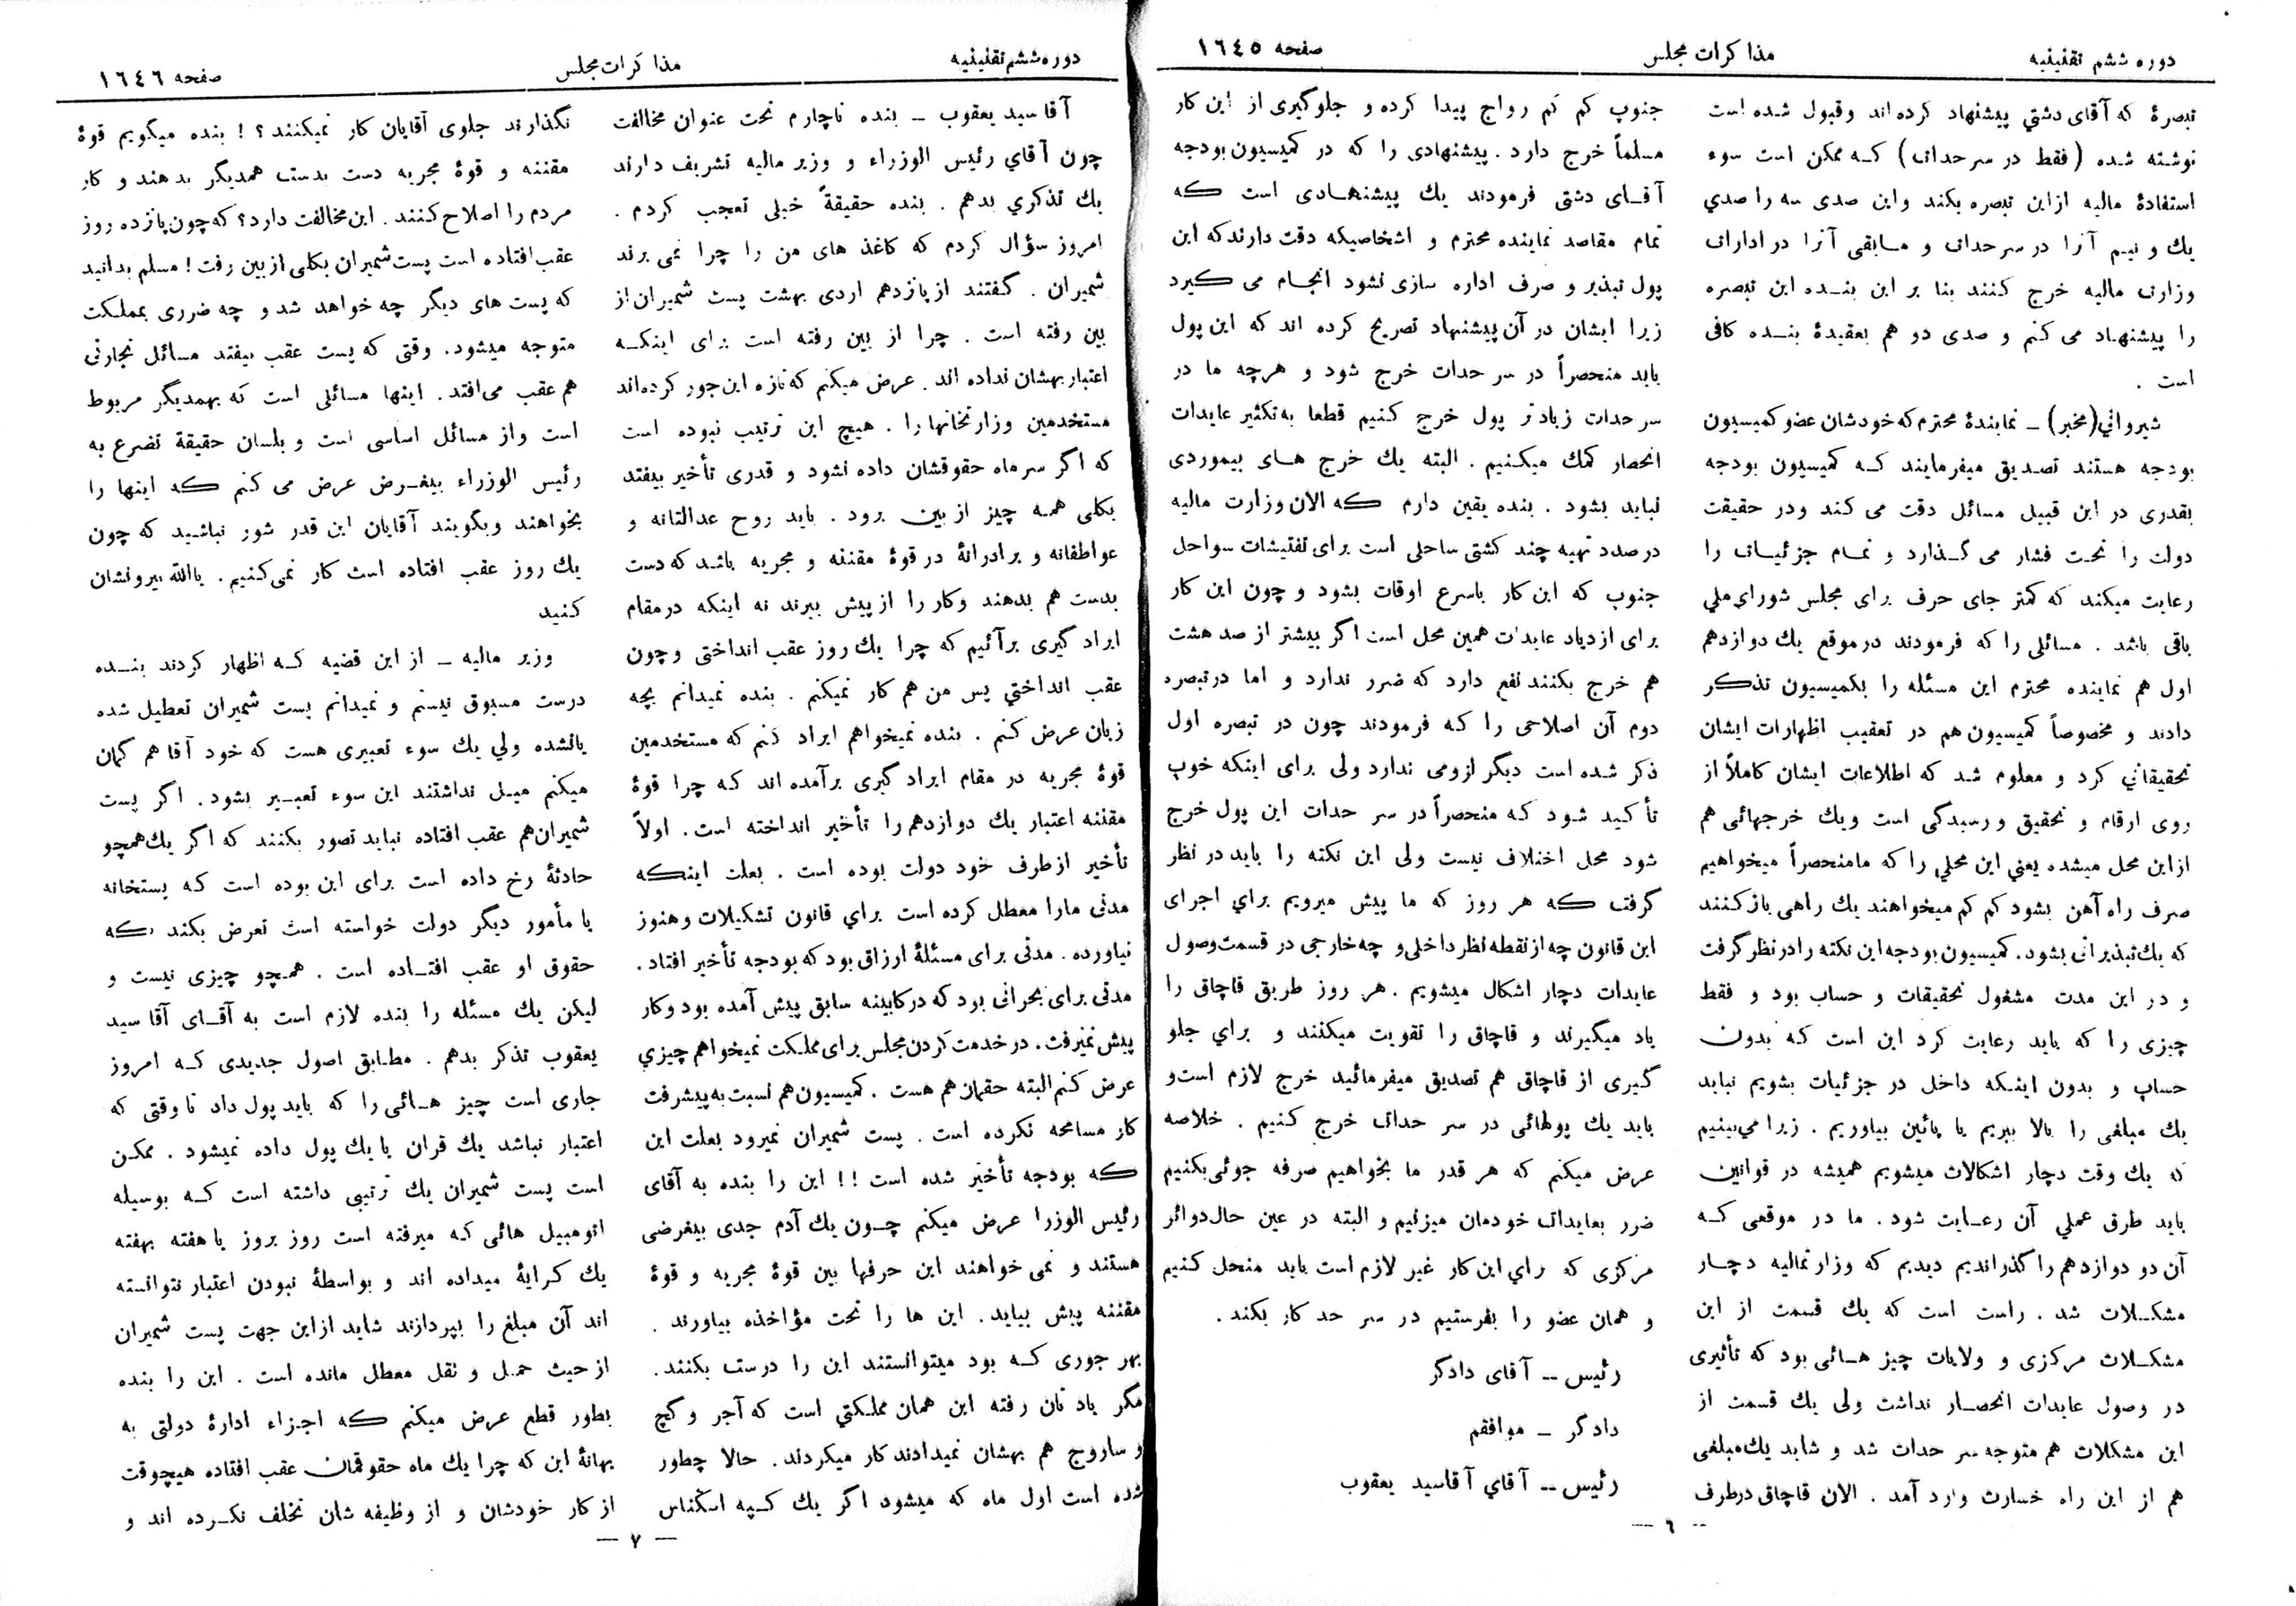 دوره ششم تقنینیه
مذاکرات مجلس
صفحه ١٦٤٥
تبصرهٔ که آقای دشتی پیشنهاد کرده اند وقبول شده است
نوشته شده (فقط در سرحدات) که ممکن است سوء
استفادهٔ مالیه ازاین تبصره بکند واین صدی سه را صدی
یك و نیم آنرا در سرحدات و مابقی آنرا در ادارات
وزارت مالیه خرج کنند بنا بر این بنده این تبصره
را پیشنهاد می کنم و صدی دو هم بعقیدهٔ بنده کافی
است .
شیروانی(مخبر) ــ نمایندهٔ محترم که خودشان عضو کمیسیون
بودجه هستند تصدیق میفرمایند که کمیسیون بودجه
بقدری در این قبیل مسائل دقت می کند ودر حقیقت
دولت را تحت فشار می گذارد و تمام جزئیات را
رعایت میکند که کمتر جای حرف برای مجلس شورای ملی
باقی باشد . مسائلی را که فرمودند درموقع یك دوازدهم
اول هم نماینده محترم این مسئله را بکمیسیون تذکر
دادند و مخصوصاً کمیسیون هم در تعقیب اظهارات ایشان
تحقیقاتی کرد و معلوم شد که اطلاعات ایشان کاملاً از
روی ارقام و تحقیق و رسیدگی است ویك خرجهائی هم
ازاین محل میشده یعنی این محلی را که مامنحصراً میخواهیم
صرف راه آهن بشود کم کم میخواهند یك راهی بازکنند
که یك تبذیراتی بشود. کمیسیون بودجه این نکته رادر نظر گرفت
و در این مدت مشغول تحقیقات و حساب بود و فقط
چیزی را که باید رعایت کرد این است که بدون
حساب و بدون اینکه داخل در جزئیات بشویم نباید
یك مبلغی را بالا ببریم یا پائین بیاوریم . زیرا می‌بینیم
که یك وقت دچار اشکالات میشویم همیشه در قوانین
باید طرق عملی آن رعایت شود . ما در موقعی که
آن دو دوازدهم را گذراندیم دیدیم که وزارتمالیه دچار
مشکلات شد . راست است که یك قسمت از این
مشکلات مرکزی و ولایات چیز هائی بود که تأثیری
در وصول عایدات انحصار نداشت ولی یك قسمت از
این مشکلات هم متوجه سر حدات شد و شاید یك مبلغی
هم از این راه خسارت وارد آمد . الان قاچاق درطرف
جنوب کم کم رواج پیدا کرده و جلوگیری از این کار
مسلماً خرج دارد . پیشنهادی را که در کمیسیون بودجه
آقای دشتی فرمودند یك پیشنهادی است که
تمام مقاصد نماینده محترم و اشخاصیکه دقت دارندکه این
پول تبذیر و صرف اداره سازی نشود انجام می گیرد
زیرا ایشان در آن پیشنهاد تصریح کرده اند که این پول
باید منحصراً در سر حدات خرج شود و هرچه ما در
سرحدات زیادتر پول خرج کنیم قطعا به تکثیر عایدات
انحصار کمك میکنیم . البته یك خرج های بیموردی
نباید بشود . بنده یقین دارم که الان وزارت مالیه
درصدد تهیه چند کشتی ساحلی است برای تفتیشات سواحل
جنوب که این کار باسرع اوقات بشود و چون این کار
برای ازدیاد عایدات همین محل است اگر بیشتر از صد هشت
هم خرج بکنند نفع دارد که ضرر ندارد و اما درتبصره
دوم آن اصلاحی را که فرمودند چون در تبصره اول
ذکر شده است دیگر لزومی ندارد ولی برای اینکه خوب
تأکید شود که منحصراً در سر حدات این پول خرج
شود محل اختلاف نیست ولی این نکته را باید در نظر
گرفت که هر روز که ما پیش میرویم برای اجرای
این قانون چه از نقطه نظر داخلی و چه خارجی در قسمت وصول
عایدات دچار اشکال میشویم . هر روز طریق قاچاق را
یاد میگیرند و قاچاق را تقویت میکنند و برای جلو
گیری از قاچاق هم تصدیق میفرمائید خرج لازم است و
باید یك پولهائی در سر حدات خرج کنیم . خلاصه
عرض میکنم که هر قدر ما بخواهیم صرفه جوئی بکنیم
ضرر بعایدات خودمان میزنیم و البته در عین حال دوائر
مرکزی که برای این کار غیر لازم است باید منحل کنیم
و همان عضو را بفرستیم در سر حد کار بکند .
رئیس ــ آقای دادگر
دادگر ــ موافقم
رئیس ــ آقای آقاسید یعقوب
ــ ٦ ــ
دوره ششم تقنینیه
مذاکرات مجلس
صفحه ١٦٤٦
آقا سید یعقوب ــ بنده ناچارم تحت عنوان مخالفت
چون آقای رئیس الوزراء و وزیر مالیه تشریف دارند
یك تذکری بدهم . بنده حقیقةً خیلی تعجب کردم .
امروز سؤال کردم که کاغذ های من را چرا نمی برند
شمیران . گفتند از پازدهم اردی بهشت پست شمیران از
بین رفته است . چرا از بین رفته است برای اینکه
اعتبار بهشان نداده اند . عرض میکنم که تازه این جور کرده‌اند
مستخدمین وزارتخانها را . هیچ این ترتیب نبوده است
که اگر سرماه حقوقشان داده نشود و قدری تأخیر بیفتد
بکلی همه چیز از بین برود . باید روح عدالتانه و
عواطفانه و برادرانهٔ در قوهٔ مقننه و مجریه باشد که دست
بدست هم بدهند وکار را از پیش ببرند نه اینکه درمقام
ایراد گیری برآئیم که چرا یك روز عقب انداختی و چون
عقب انداختی پس من هم کار نمیکنم . بنده نمیدانم بچه
زبان عرض کنم . بنده نمیخواهم ایراد کنم که مستخدمین
قوهٔ مجریه در مقام ایراد گیری برآمده اند که چرا قوهٔ
مقننه اعتبار یك دوازدهم را تأخیر انداخته است . اولاً
تأخیر از طرف خود دولت بوده است . بعلت اینکه
مدتی مارا معطل کرده است برای قانون تشکیلات و هنوز
نیاورده . مدتی برای مسئلهٔ ارزاق بود که بودجه تأخیر افتاد .
مدتی برای بحرانی بود که درکابینه سابق پیش آمده بود وکار
پیش نمیرفت . در خدمت کردن مجلس برای مملکت نمیخواهم چیزی
عرض کنم البته حقمان هم هست . کمیسیون هم نسبت به پیشرفت
کار مسامحه نکرده است . پست شمیران نمیرود بعلت این
که بودجه تأخیر شده است !! این را بنده به آقای
رئیس الوزرا عرض میکنم چون یك آدم جدی بیغرضی
هستند و نمی خواهند این حرفها بین قوهٔ مجریه و قوهٔ
مقننه پیش بیاید . این ها را تحت مؤاخذه بیاورند .
بهر جوری که بود میتوانستند این را درست بکنند .
مگر یاد تان رفته این همان مملکتی است که آجر و گچ
و ساروج هم بهشان نمیدادند کار میکردند . حالا چطور
شده است اول ماه که میشود اگر یك کپه اسکناس
نگذارند جلوی آقایان کار نمیکنند ؟ ! بنده میگویم قوهٔ
مقننه و قوهٔ مجریه دست بدست همدیگر بدهند و کار
مردم را اصلاح کنند . این مخالفت دارد؟ که چون پازده روز
عقب افتاده است پست شمیران بکلی از بین رفت ! مسلم بدانید
که پست های دیگر چه خواهد شد و چه ضرری بمملکت
متوجه میشود . وقتی که پست عقب بیفتد مسائل تجارتی
هم عقب می‌افتد . اینها مسائلی است که بهمدیگر مربوط
است واز مسائل اساسی است و بلسان حقیقة تضرع به
رئیس الوزراء بیغرض عرض می کنم که اینها را
بخواهند وبگویند آقایان این قدر شور نباشید که چون
یك روز عقب افتاده است کار نمی‌کنیم . یاالله بیرونشان
کنید
وزیر مالیه ــ از این قضیه که اظهار کردند بنده
درست مسبوق نیستم و نمیدانم پست شمیران تعطیل شده
یانشده ولی یك سوء تعبیری هست که خود آقا هم گمان
میکنم میل نداشتند این سوء تعبیر بشود . اگر پست
شمیران هم عقب افتاده نباید تصور بکنند که اگر یك همچو
حادثهٔ رخ داده است برای این بوده است که پستخانه
یا مأمور دیگر دولت خواسته است تعرض بکند که
حقوق او عقب افتاده است . همچو چیزی نیست و
لیکن یك مسئله را بنده لازم است به آقای آقا سید
یعقوب تذکر بدهم . مطابق اصول جدیدی که امروز
جاری است چیز هائی را که باید پول داد تا وقتی که
اعتبار نباشد یك قران یا یك پول داده نمیشود . ممکن
است پست شمیران یك ترتیبی داشته است که بوسیله
اتومبیل هائی که میرفته است روز بروز یا هفته بهفته
یك کرایهٔ میداده اند و بواسطهٔ نبودن اعتبار نتوانسته
اند آن مبلغ را بپردازند شاید ازاین جهت پست شمیران
از حیث حمل و نقل معطل مانده است . این را بنده
بطور قطع عرض میکنم که اجزاء ادارهٔ دولتی به
بهانهٔ این که چرا یك ماه حقوقمان عقب افتاده هیچوقت
از کار خودشان و از وظیفه شان تخلف نکرده اند و
ــ ٧ ــ